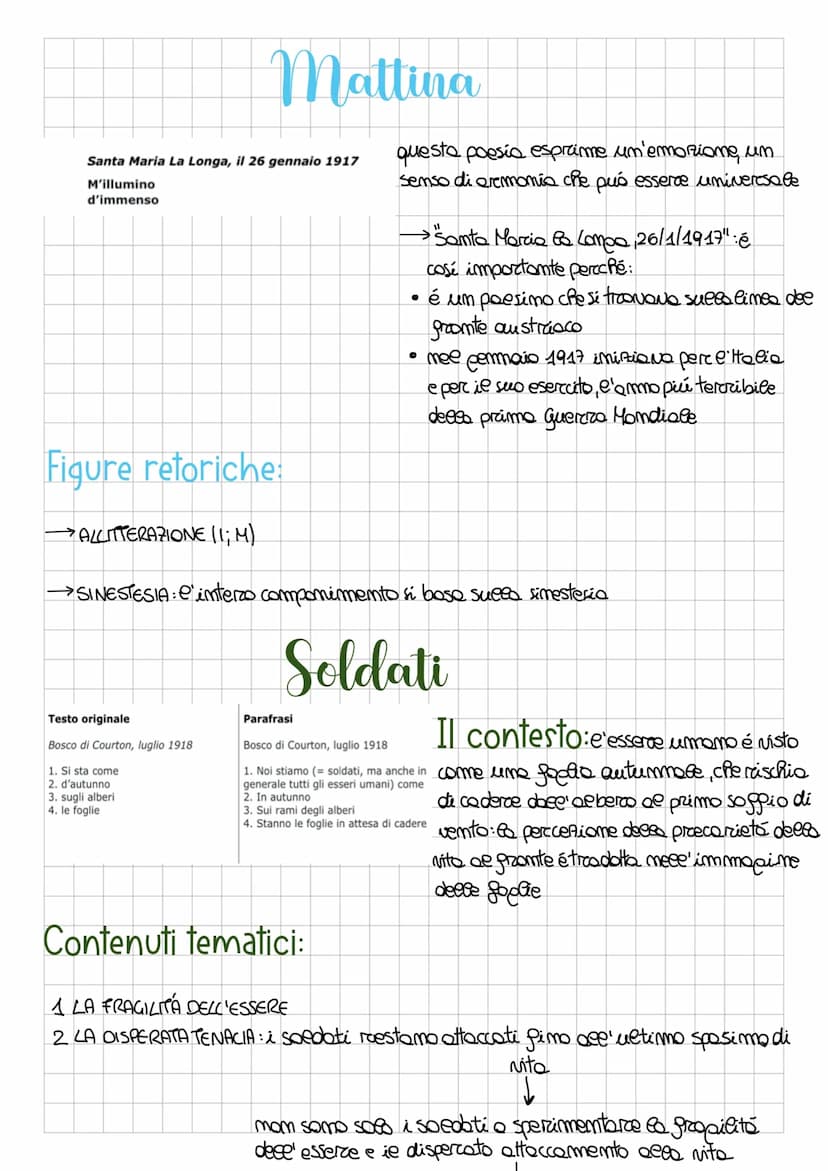 Mattina
Santa Maria La Longa, il 26 gennaio 1917
M'illumino
d'immenso
questa poesia esprime un'emozione, un
senso di armonia che può essere universale
→ "Santa Maria la Longa, 26/1/1917": é
così importante perché:
• é un paesimo che si trovava sulla linea del
fronte austriaco
• nel gennaio 1917 iniziava per l'Italia
e per il suo esercito, l'anno più terribile
della prima Guerra Mondiale
Figure retoriche:
→ ALLITTERAZIONE (I; M)
→ SINESTESIA: l'intero componimento si basa sulla sinestesia
Soldati
Testo originale
Bosco di Courton, luglio 1918
1. Si sta come
2. d'autunno
3. sugli alberi
4. le foglie
Parafrasi
Bosco di Courton, luglio 1918
1. Noi stiamo (= soldati, ma anche in
generale tutti gli esseri umani) come
2. In autunno
3. Sui rami degli alberi
4. Stanno le foglie in attesa di cadere
Il contesto: l'essere umano é visto
come una foglia autunnale, che rischia
di cadere dall'albero al primo soffio di
vento: la percezione della precarietá della
vita al fronte é tradotta nell'immagine
delle foglie
Contenuti tematici:
1 LA FRAGILITÁ DELL'ESSERE
2 LA DISPERATA TENACIA: i soldati restano attaccati fino all'ultimo spasimo di
vita
↓
non sono solo i soldati a sperimentare la fragilitá
dell'essere e il disperato attaccamento alla vita